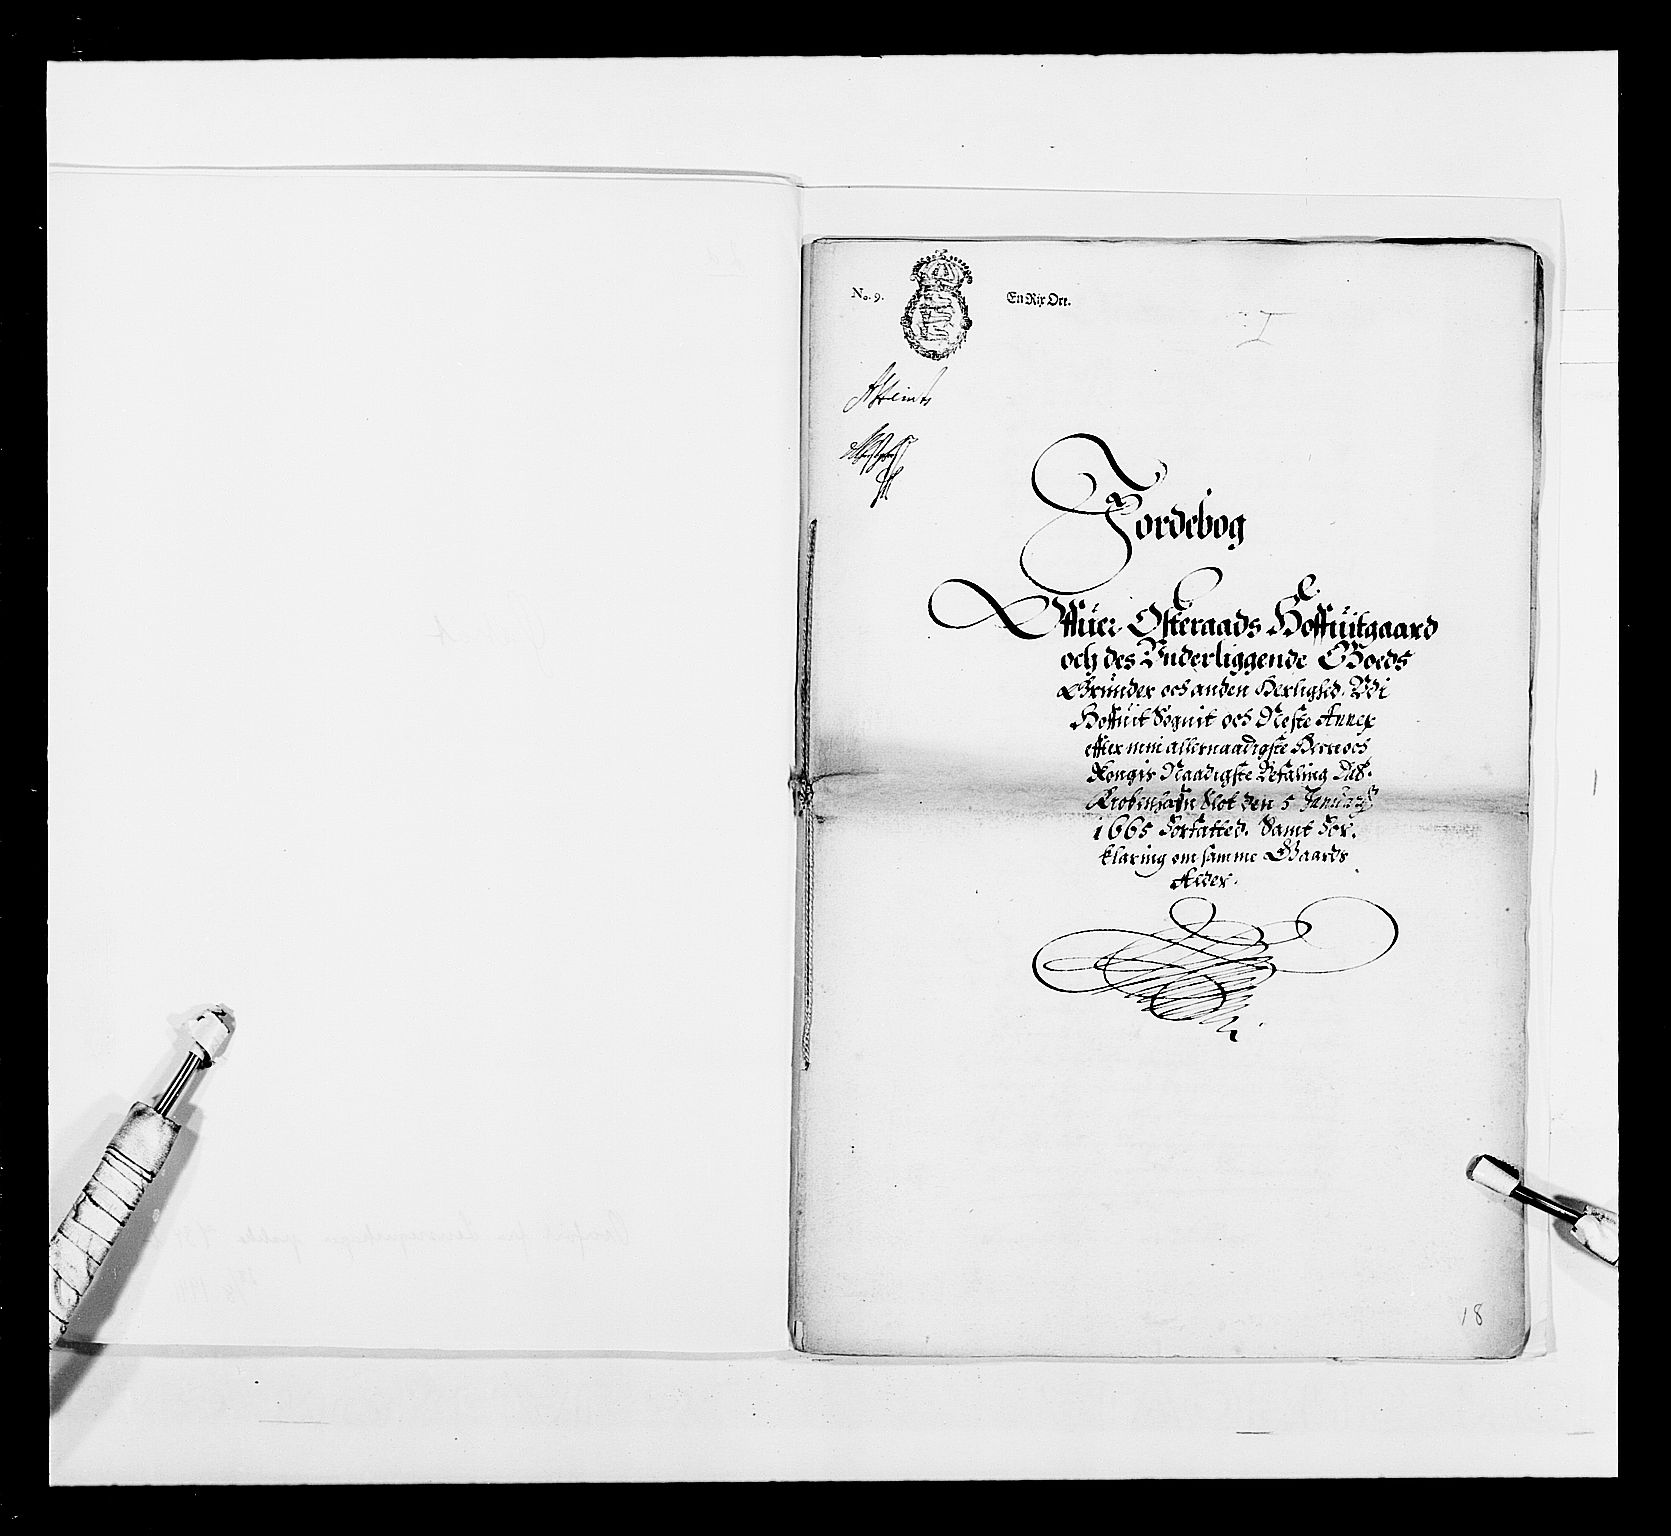 No. 9.
En Rix Ort.
Jordebog
Offuer Østeraads Hoffuitgaard
och des Vnderliggende Goeds
Grunder och anden Herlighed. Vdi
Hoffuit Sognit och Neste Annex
effter min allernaadigste Herre och
Kongis Naadigste Befaling Dat.
Kiøbenhafn Slot den 5 January
1665 Forfatted. Samt For.
klaring om samme Gaards
Alder.
18